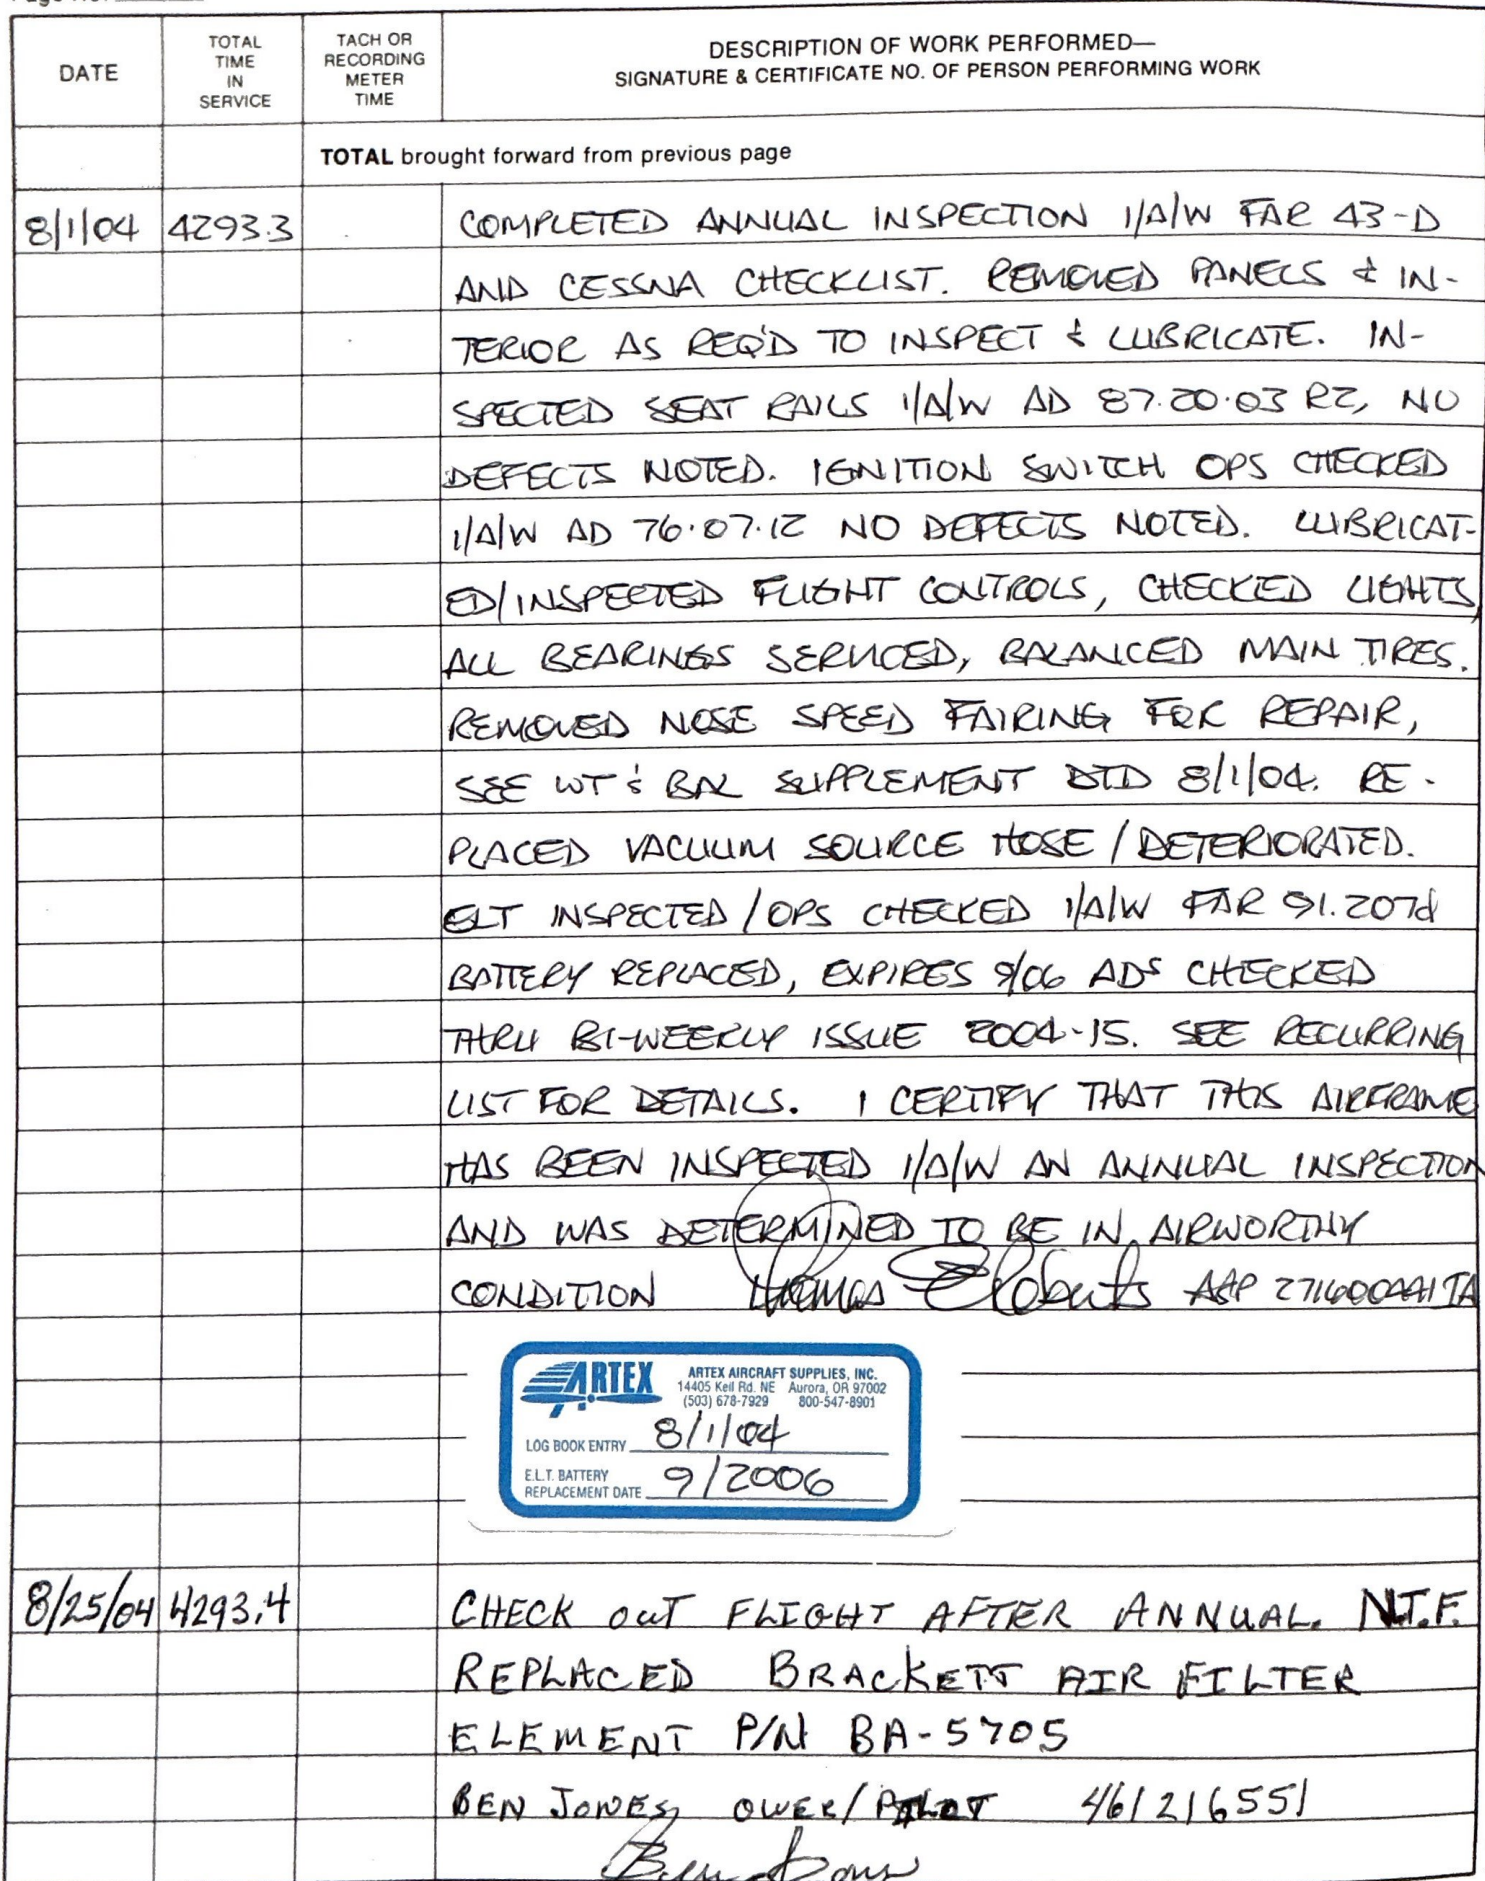 DATE
TOTAL
TIME
IN
SERVICE
TACH OR
RECORDING
METER
TIME
DESCRIPTION OF WORK PERFORMED—
SIGNATURE & CERTIFICATE NO. OF PERSON PERFORMING WORK
TOTAL brought forward from previous page
8/1/04 4293.3 COMPLETED ANNUAL INSPECTION I/A/W FAR 43-D
AND CESSNA CHECKLIST. REMOVED PANELS & IN-
TERIOR AS REQ'D TO INSPECT & LUBRICATE. IN-
SPECTED SEAT RAILS I/A/W AD 87.20.03 R2, NO
DEFECTS NOTED. IGNITION SWITCH OPS CHECKED
I/A/W AD 76.07.12 NO DEFECTS NOTED. LUBRICAT-
ED/INSPECTED FLIGHT CONTROLS, CHECKED LIGHTS,
ALL BEARINGS SERVICED, BALANCED MAIN TIRES.
REMOVED NOSE SPEED FAIRING FOR REPAIR,
SEE WT & BAL SUPPLEMENT DTD 8/1/04. RE-
PLACED VACUUM SOURCE HOSE / DETERIORATED.
ELT INSPECTED / OPS CHECKED I/A/W FAR 91.207d
BATTERY REPLACED, EXPIRES 9/06 ADS CHECKED
THRU BI-WEEKLY ISSUE 2004-15. SEE RECURRING
LIST FOR DETAILS. I CERTIFY THAT THIS AIRFRAME
HAS BEEN INSPECTED I/A/W AN ANNUAL INSPECTION
AND WAS DETERMINED TO BE IN AIRWORTHY
CONDITION Thomas Roberts A&P
ARTEX
ARTEX AIRCRAFT SUPPLIES, INC.
14405 Keil Rd. NE Aurora, OR 97002
(503) 678-7929 800-547-8901
LOG BOOK ENTRY 8/1/04
E.L.T. BATTERY
REPLACEMENT DATE 9/2006
8/25/04 4293.4 CHECK OUT FLIGHT AFTER ANNUAL. N.T.F.
REPLACED BRACKETT AIR FILTER
ELEMENT P/N BA-5705
BEN JONES, OWER/PILOT 461216551
Ben Jones